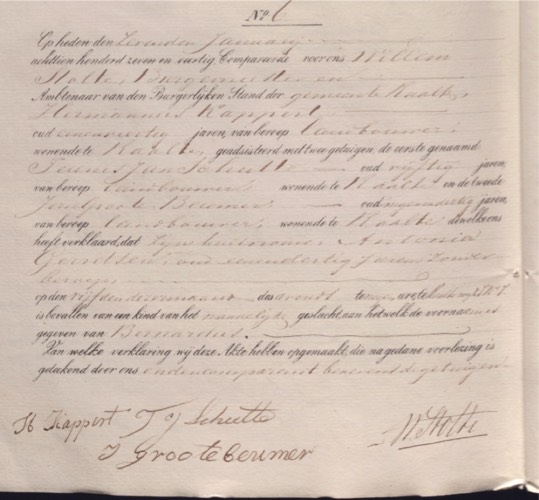 No 6
Op heden den Zevenden Januarij
achttien honderd zeven en veertig Compareerde voor ons Willem
Stolte, Burgemeester en
Ambtenaar van den Burgerlijken Stand der gemeente Raalte,
Hermannus Kappert
oud eenenveertig jaren, van beroep landbouwer,
wonende te Raalte, geadsisteerd met twee getuigen, de eerste genaamd
Teunis Jan Schutte oud vijftig jaren,
van beroep landbouwer, wonende te Raalte en de tweede
Jan Groote Beumer oud jaren,
van beroep landbouwer, wonende te Raalte dewelke ons
heeft verklaard, dat zijne huisvrouw Antonia
Gerritsen, oud eenendertig Jaren, zonder
beroep
op den vijfden dezer maand des avonds te ure, in het huis wijk No
is bevallen van een kind van het mannelijke geslacht, aan hetwelk de voornaam is
gegeven van Bernardus.
Van welke verklaring wij deze Akte hebben opgemaakt, die na gedane voorlezing is
geteekend door ons en den comparant benevens de getuigen
H Kappert T J Schutte
J Grootebeumer
W Stolte